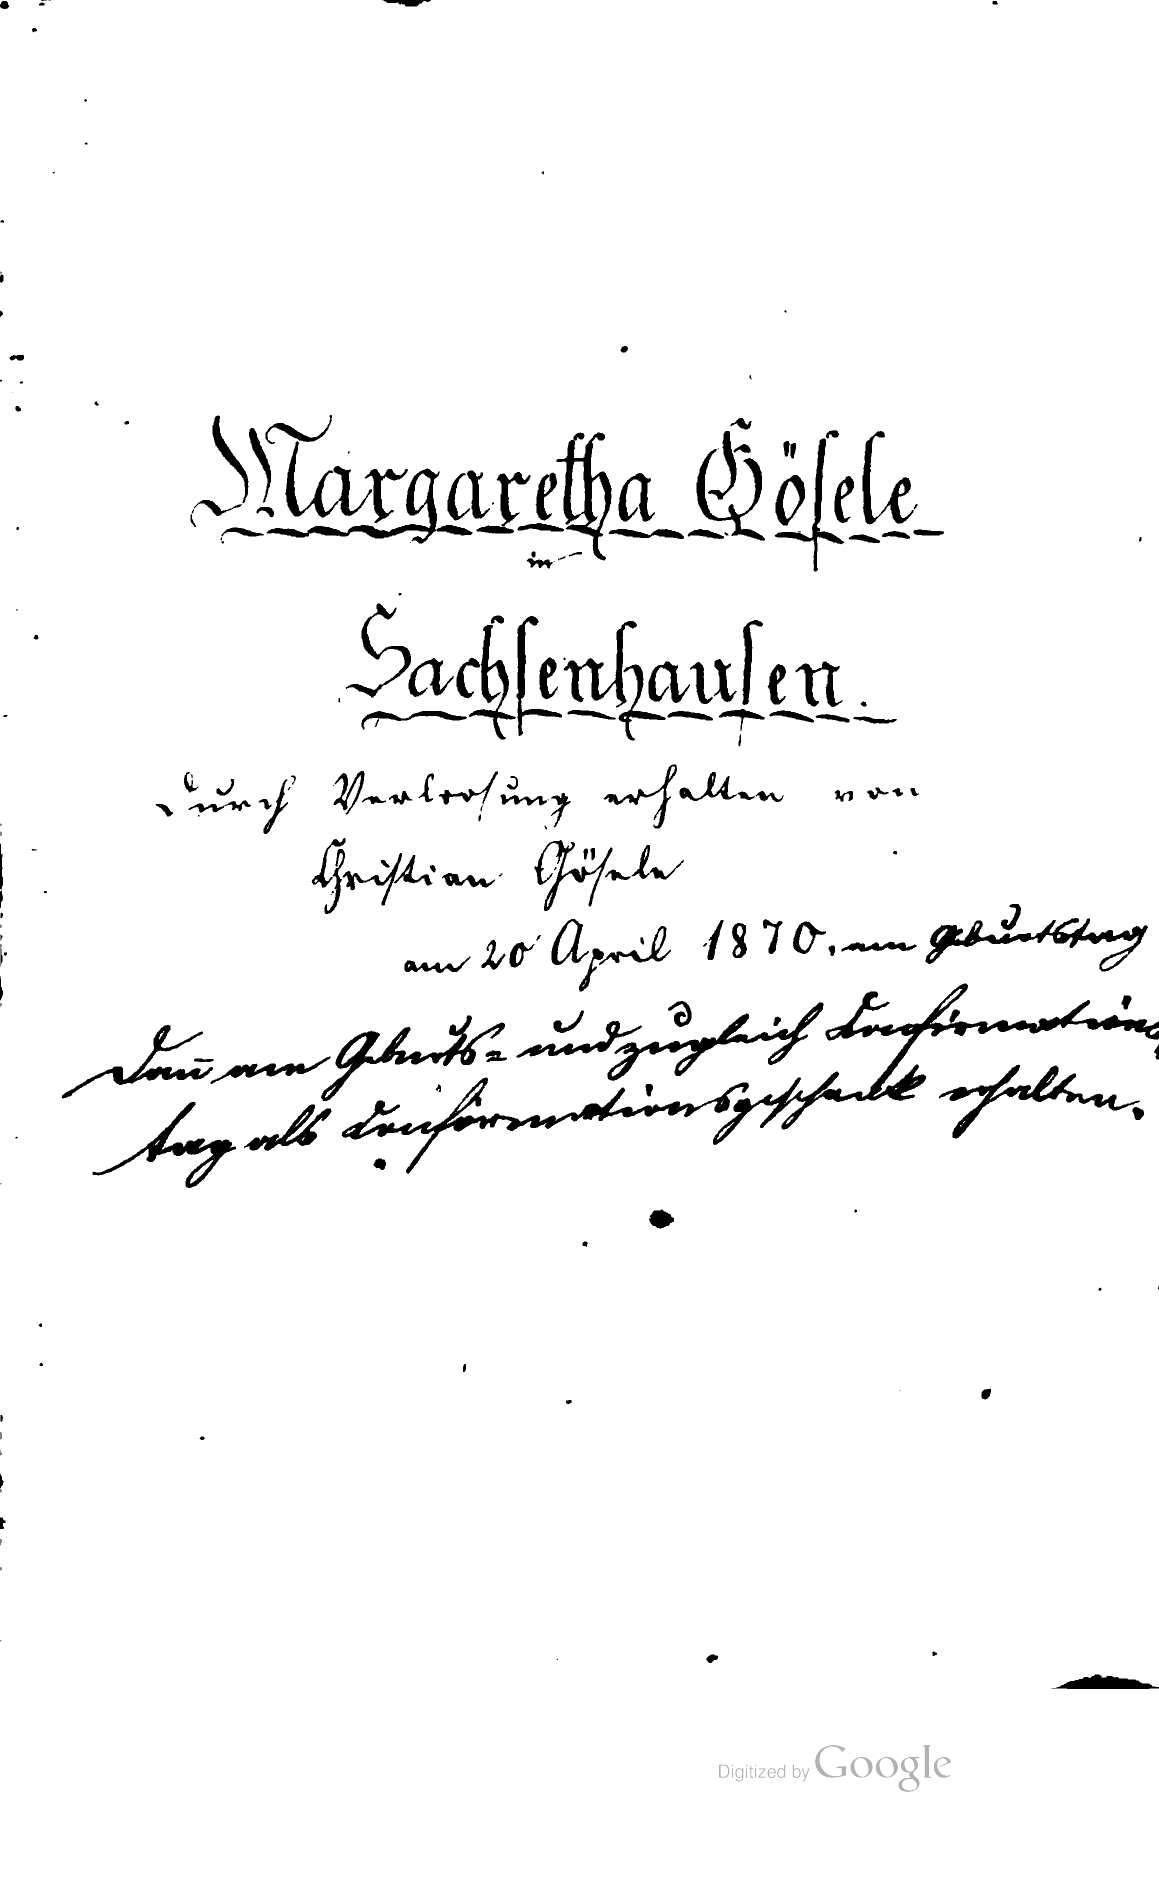 Margaretha Gösele
in
Sachsenhausen.
durch Verloosung erhalten von
Christian Gösele
am 20 April 1870, am Geburtstag
Dan̄ am Geburts= und zugleich Confirmations
tag als Confirmationsgeschenk erhalten.
Digitized by Google